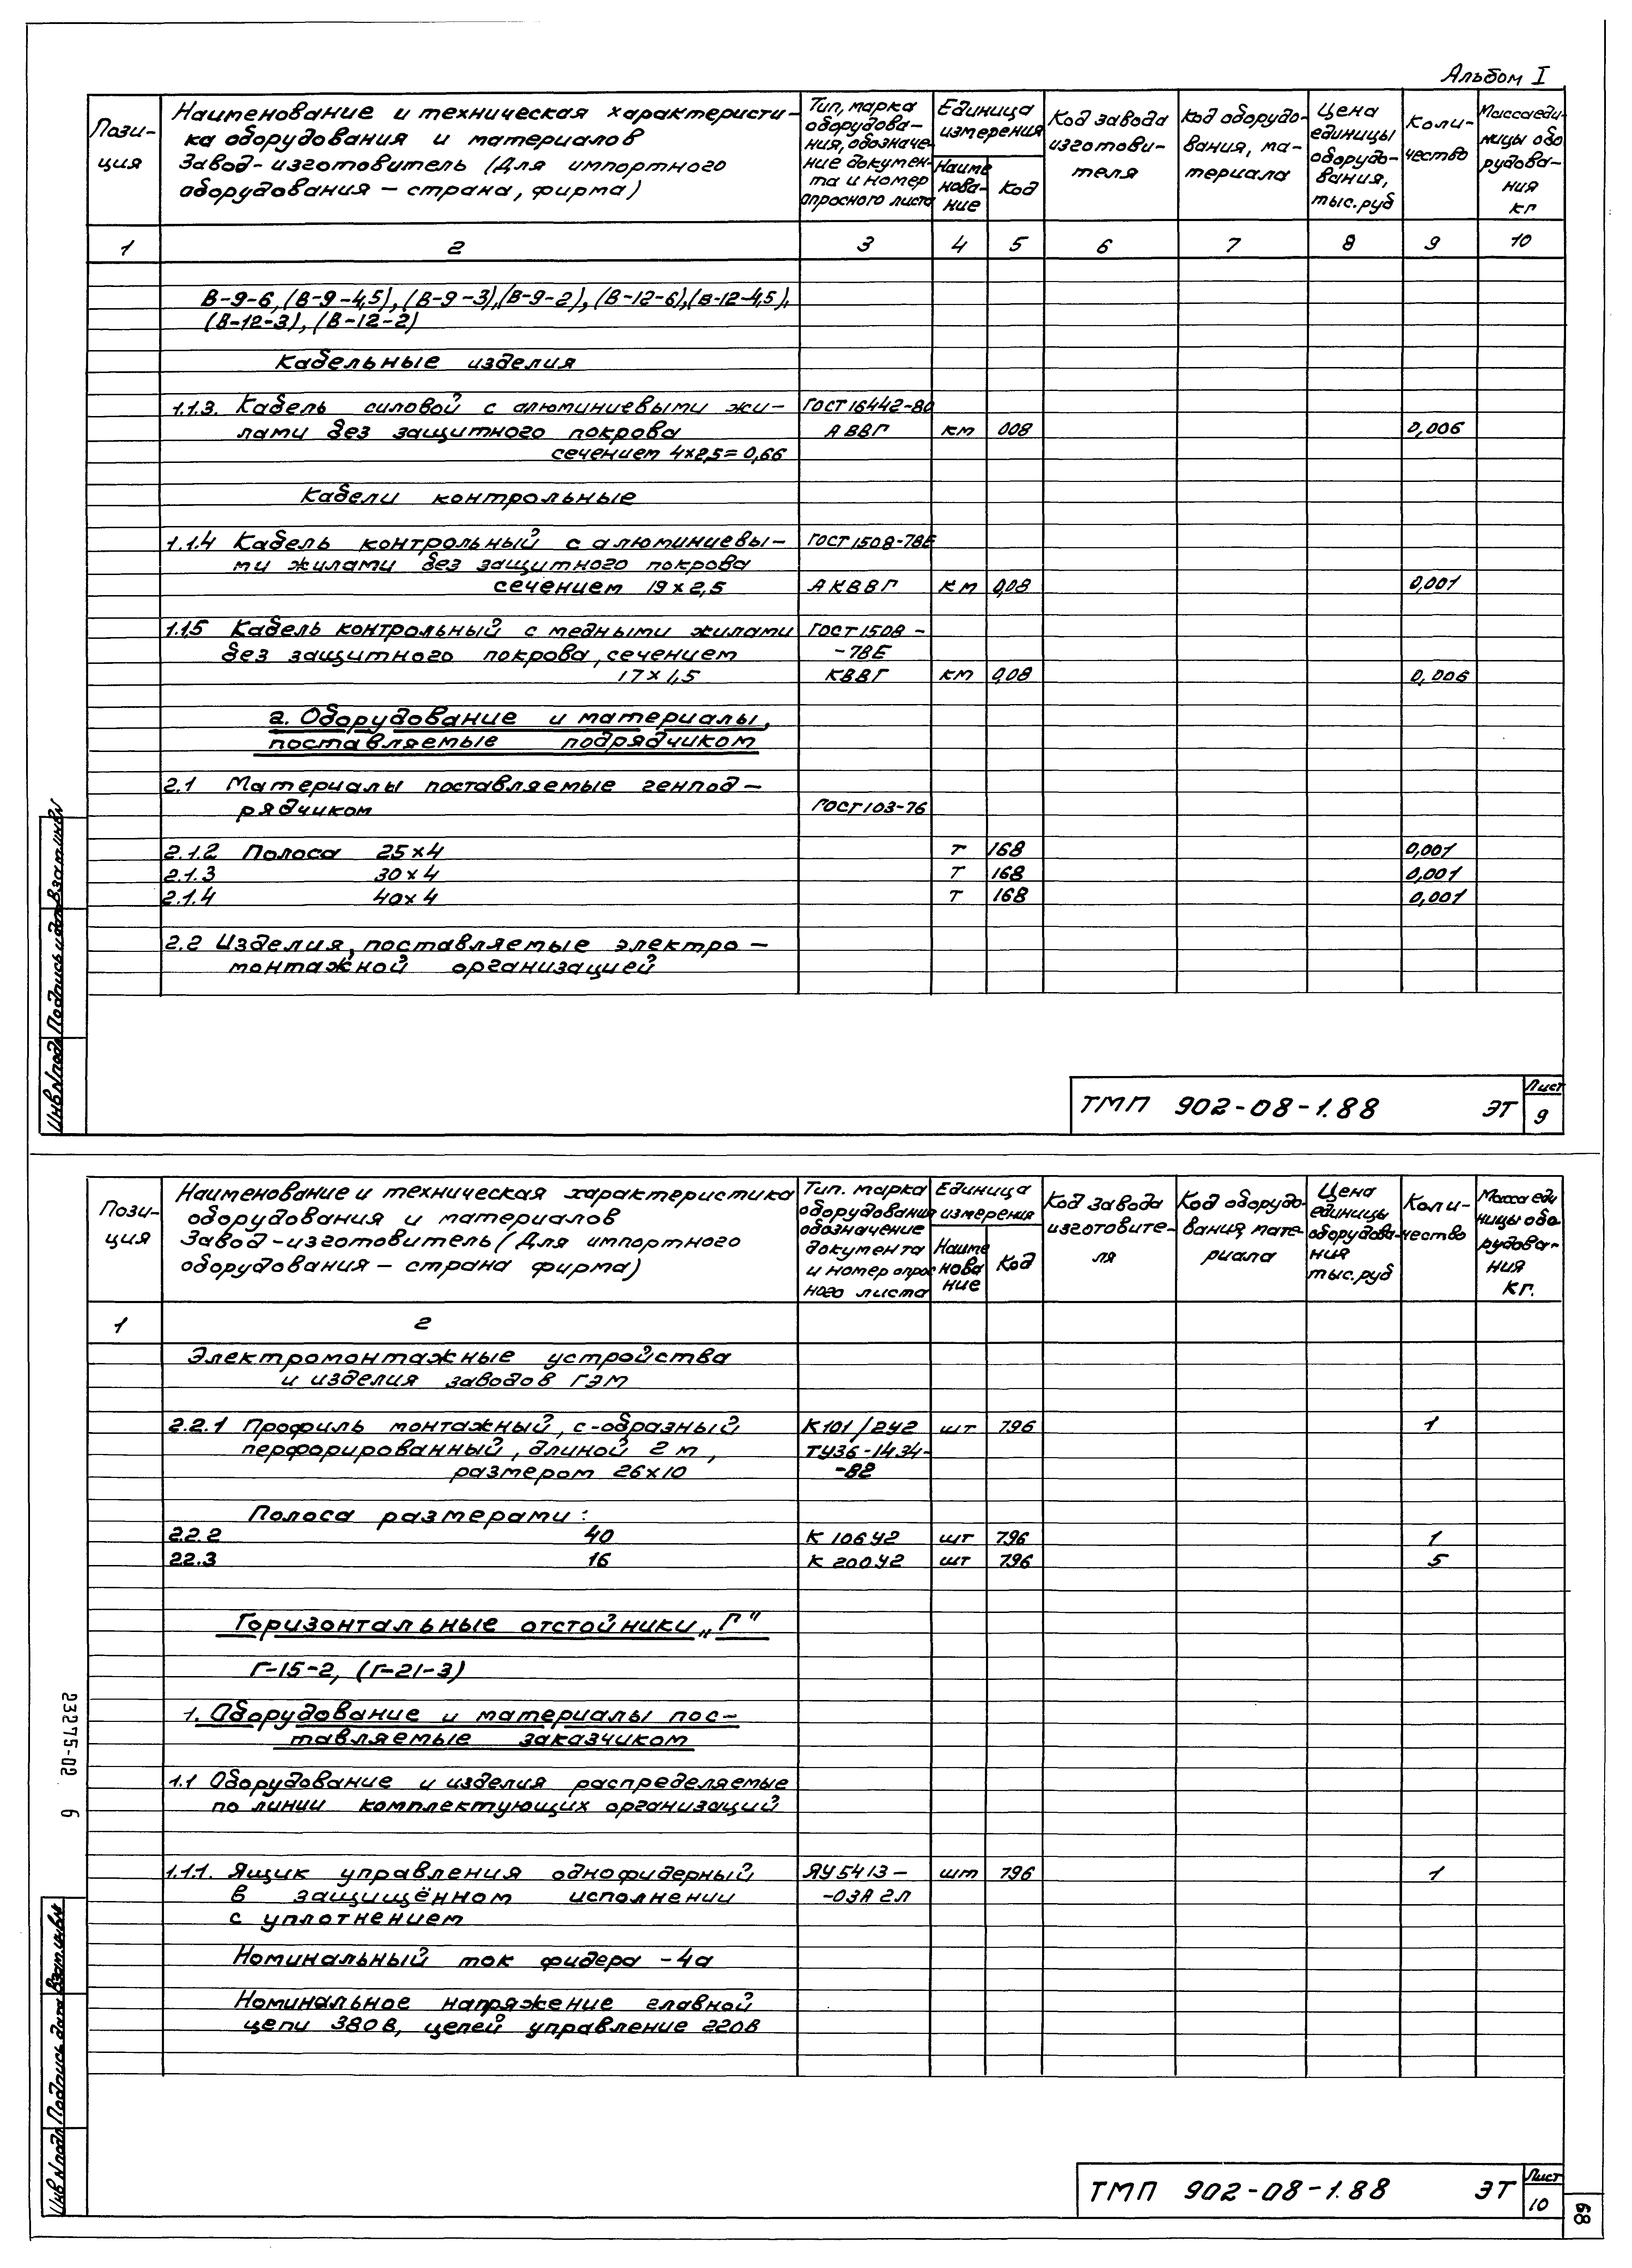 Альбом I
Пози-
ция
Наименование и техническая характеристи-
ка оборудования и материалов
Завод-изготовитель (Для импортного
оборудования – страна, фирма)
Тип, марка
оборудова-
ния, обозначе-
ние докумен-
та и номер
опросного листа
Единица
измерения
Наиме
нова-
ние
Код
Код завода
изготови-
теля
Код оборудо-
вания, ма-
териала
Цена
единицы
оборудо-
вания,
тыс.руб
Коли-
чество
Масса еди-
ницы обо
рудова-
ния
кг
1 2 3 4 5 6 7 8 9 10
В-9-6, (В-9-4,5), (В-9-3), (В-9-2), (В-12-6), (В-12-4,5),
(В-12-3), (В-12-2)
Кабельные изделия
1.1.3. Кабель силовой с алюминиевыми жи- ГОСТ 16442-80
лами без защитного покрова АВВГ км 008 0,006
сечением 4×2,5=0,66
Кабели контрольные
1.1.4 Кабель контрольный с алюминиевы- ГОСТ 1508-78Е
ми жилами без защитного покрова
сечением 19×2,5 АКВВГ км 0,08 0,001
1.1.5 Кабель контрольный с медными жилами ГОСТ 1508-
без защитного покрова, сечением -78Е
17×1,5 КВВГ км 0,08 0,006
2. Оборудование и материалы,
поставляемые подрядчиком
2.1 Материалы поставляемые генпод-
рядчиком ГОСТ 103-76
2.1.2 Полоса 25×4 т 168 0,001
2.1.3 30×4 т 168 0,001
2.1.4 40×4 т 168 0,001
2.2 Изделия, поставляемые электро-
монтажной организацией
Инв.N подл. Подпись и дата Взам.инв.N
ТМП 902-08-1.88 ЭТ
Лист
9
Пози-
ция
Наименование и техническая характеристика
оборудования и материалов
Завод-изготовитель (Для импортного
оборудования – страна фирма)
Тип. марка
оборудования
обозначение
документа
и номер опрос
ного листа
Единица
измерения
Наиме
нова
ние
Код
Код завода
изготовите-
ля
Код оборудо-
вания, мате-
риала
Цена
единицы
оборудова-
ния
тыс.руб
Коли-
чество
Масса еди
ницы обо-
рудова-
ния
кг.
1 2
Электромонтажные устройства
и изделия заводов ГЭМ
2.2.1 Профиль монтажный, с-образный К101/2У2 шт 796 1
перфорированный, длиной 2 м, ТУ36-1434-
размером 26×10 -82
Полоса размерами:
2.2.2 40 К 106У2 шт 796 1
2.2.3 16 К 200У2 шт 796 5
Горизонтальные отстойники „Г"
Г-15-2, (Г-21-3)
1. Оборудование и материалы пос-
тавляемые заказчиком
1.1 Оборудование и изделия распределяемые
по линии комплектующих организаций
1.1.1. Ящик управления однофидерный ЯУ5413- шт 796 1
в защищённом исполнении -03А2Л
с уплотнением
Номинальный ток фидера -4а
Номинальное напряжение главной
цепи 380в, цепей управление 220в
23275-02 6
Инв N подл. Подпись дата Взам.инв.N
ТМП 902-08-1.88 ЭТ
Лист
10
68